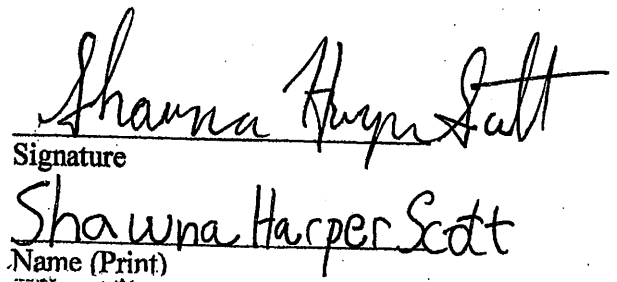 Shawna Harper Scott
Signature
Shawna Harper Scott
Name (Print)